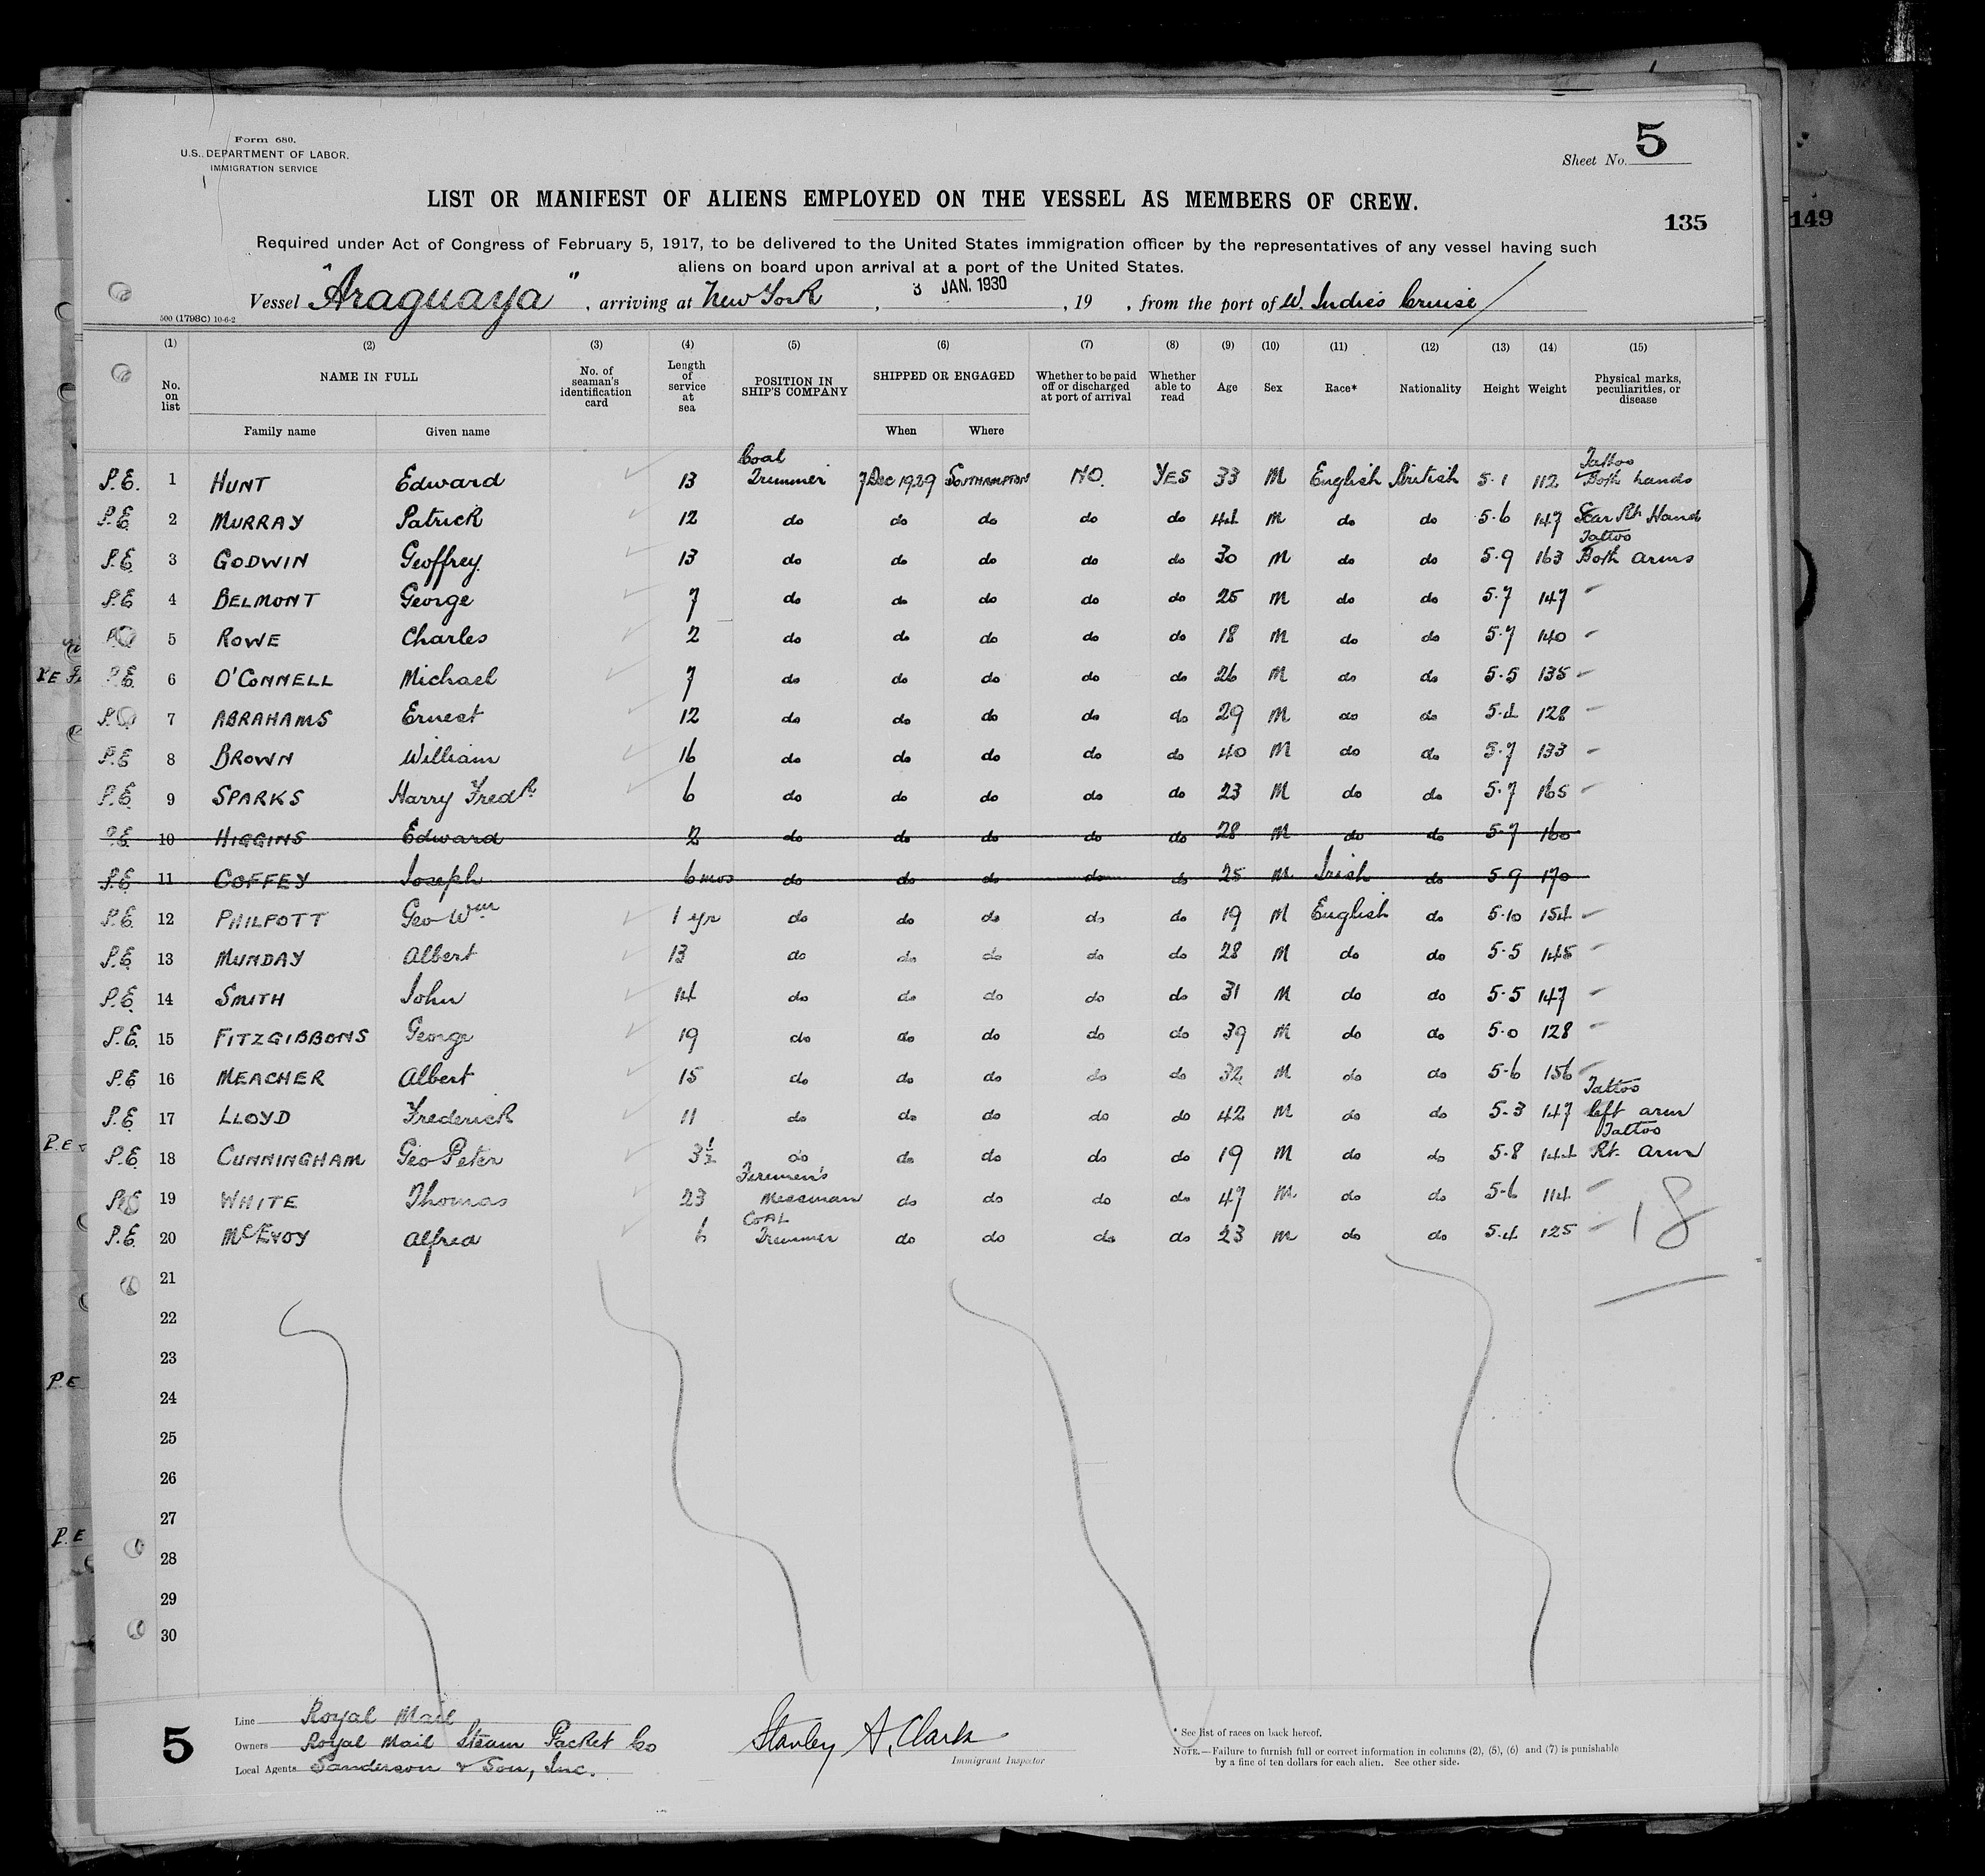 Form 680.
U.S. DEPARTMENT OF LABOR.
IMMIGRATION SERVICE
Sheet No. 5
LIST OR MANIFEST OF ALIENS EMPLOYED ON THE VESSEL AS MEMBERS OF CREW.
135
149
Required under Act of Congress of February 5, 1917, to be delivered to the United States immigration officer by the representatives of any vessel having such
aliens on board upon arrival at a port of the United States.
Vessel "Araguaya", arriving at New York, 3 JAN. 1930, 19 , from the port of W. Indies Cruise
500 (1798C) 10-6-2
(1) (2) (3) (4) (5) (6) (7) (8) (9) (10) (11) (12) (13) (14) (15)
No. on list NAME IN FULL No. of seaman's identification card Length of service at sea POSITION IN SHIP'S COMPANY SHIPPED OR ENGAGED Whether to be paid off or discharged at port of arrival Whether able to read Age Sex Race* Nationality Height Weight Physical marks, peculiarities, or disease
Family name Given name When Where
P.E. 1 HUNT Edward 13 Coal Trimmer 7 Dec 1929 SOUTHAMPTON NO. YES 33 M English British 5.1 112 Tattoo Both hands
P.E. 2 MURRAY Patrick 12 do do do do do 41 M do do 5.6 147 Scar Rt Hand
P.E. 3 GODWIN Geoffrey 13 do do do do do 30 M do do 5.9 163 Tattoo Both arms
P.E 4 BELMONT George 7 do do do do do 25 M do do 5.7 147
5 ROWE Charles 2 do do do do do 18 M do do 5.7 140
P.E. 6 O'CONNELL Michael 7 do do do do do 26 M do do 5.5 135
7 ABRAHAMS Ernest 12 do do do do do 29 M do do 5.4 128
P.E 8 BROWN William 16 do do do do do 40 M do do 5.7 133
P.E. 9 SPARKS Harry Fredk 6 do do do do do 23 M do do 5.7 165
P.E. 10 HIGGINS Edward 2 do do do do do 28 M do do 5.7 160
P.E 11 COFFEY Joseph 6 mos do do do do do 25 M Irish do 5.9 170
P.E. 12 PHILPOTT Geo Wm 1 yr do do do do do 19 M English do 5.10 154
P.E. 13 MUNDAY Albert 13 do do do do do 28 M do do 5.5 145
P.E. 14 SMITH John 14 do do do do do 31 M do do 5.5 147
P.E. 15 FITZGIBBONS George 19 do do do do do 39 M do do 5.0 128
P.E 16 MEACHER Albert 15 do do do do do 32 M do do 5.6 156
P.E. 17 LLOYD Frederick 11 do do do do do 42 M do do 5.3 147 Tattoo left arm
P.E. 18 CUNNINGHAM Geo Peter 3½ do do do do do 19 M do do 5.8 144 Tattoo Rt. arm
P.E 19 WHITE Thomas 23 Firemen's Messman do do do do 47 M do do 5.6 114
P.E. 20 McEVOY Alfred 6 COAL Trimmer do do do do 23 M do do 5.4 125
18
21
22
23
24
25
26
27
28
29
30
5
Line Royal Mail
Owners Royal Mail Steam Packet Co
Local Agents Sanderson & Son, Inc.
Stanley A. Clark
Immigrant Inspector
* See list of races on back hereof.
NOTE.—Failure to furnish full or correct information in columns (2), (5), (6) and (7) is punishable
by a fine of ten dollars for each alien. See other side.
P.E
P.E
P.E